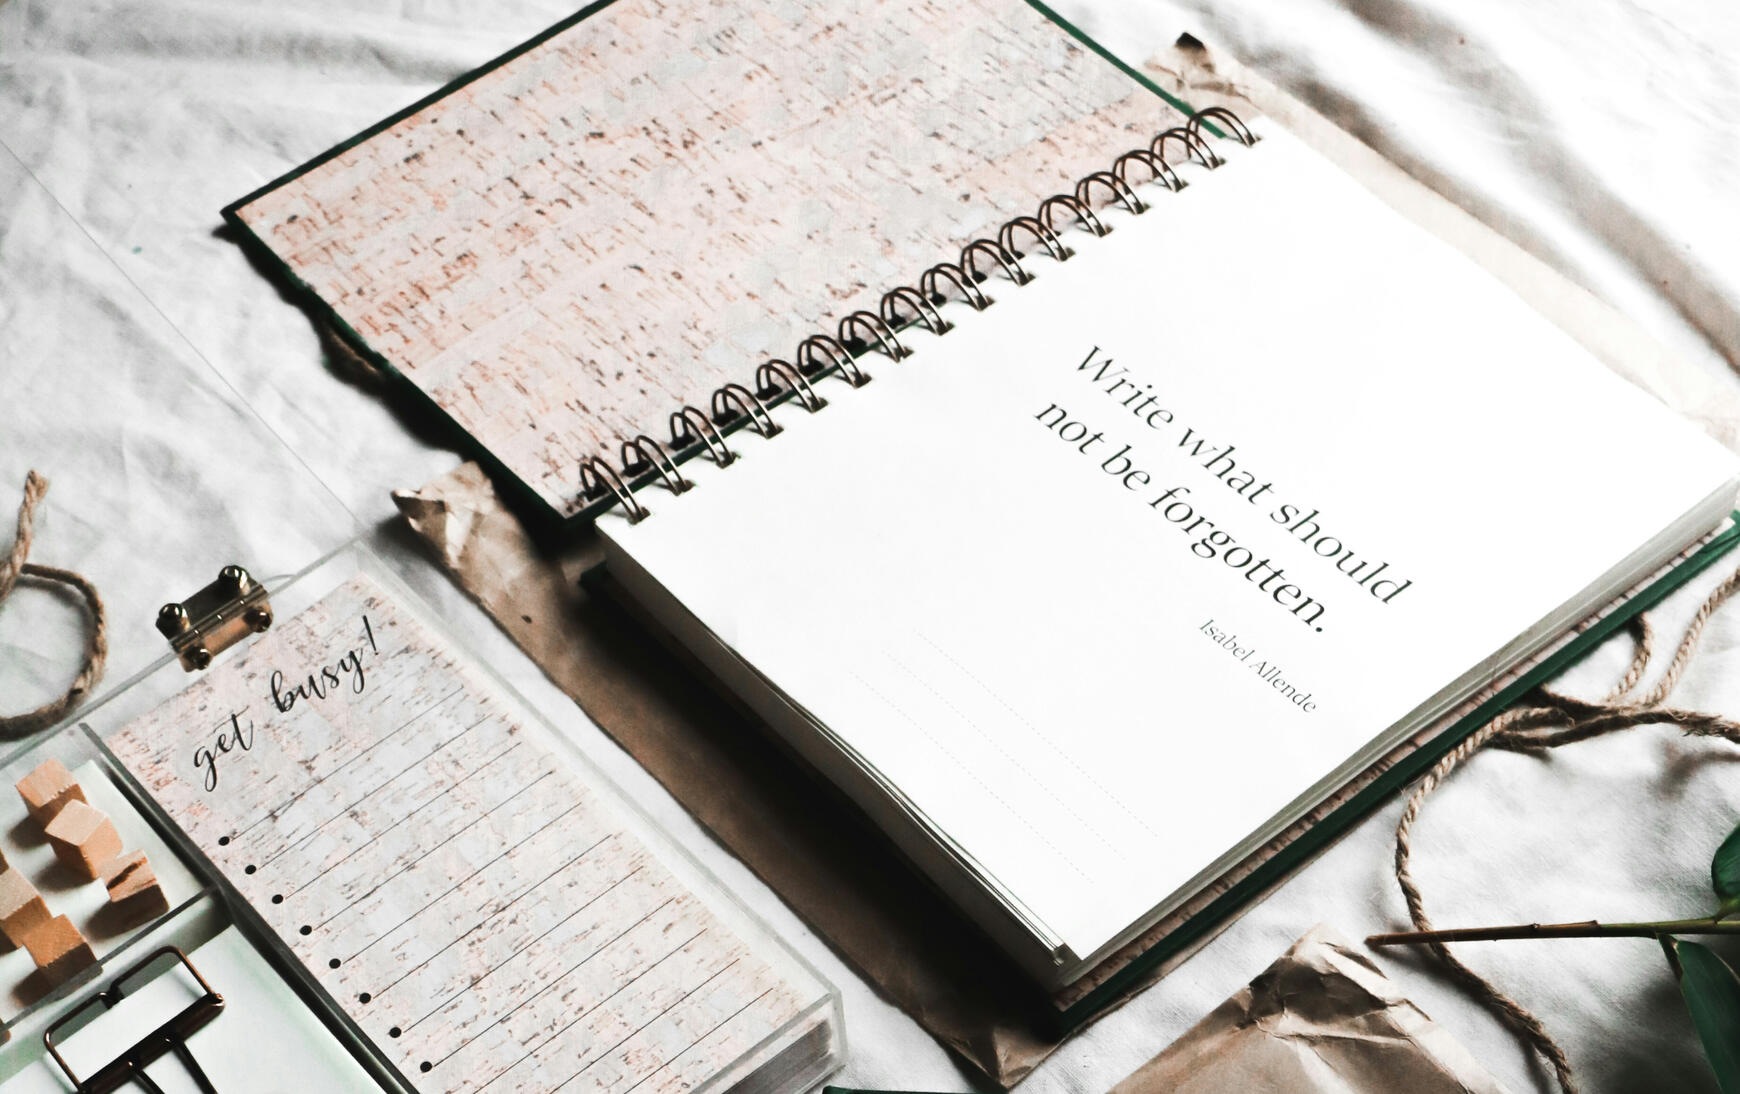 Write what should
not be forgotten.
Isabel Allende
get busy!